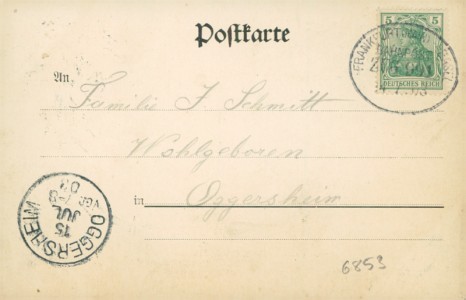 Postkarte
5 5
DEUTSCHES REICH
FRANKFURT
An
Familie J. Schmitt
Wohlgeboren
in Oggersheim
OGGERSHEIM
15
JUL
03
6853